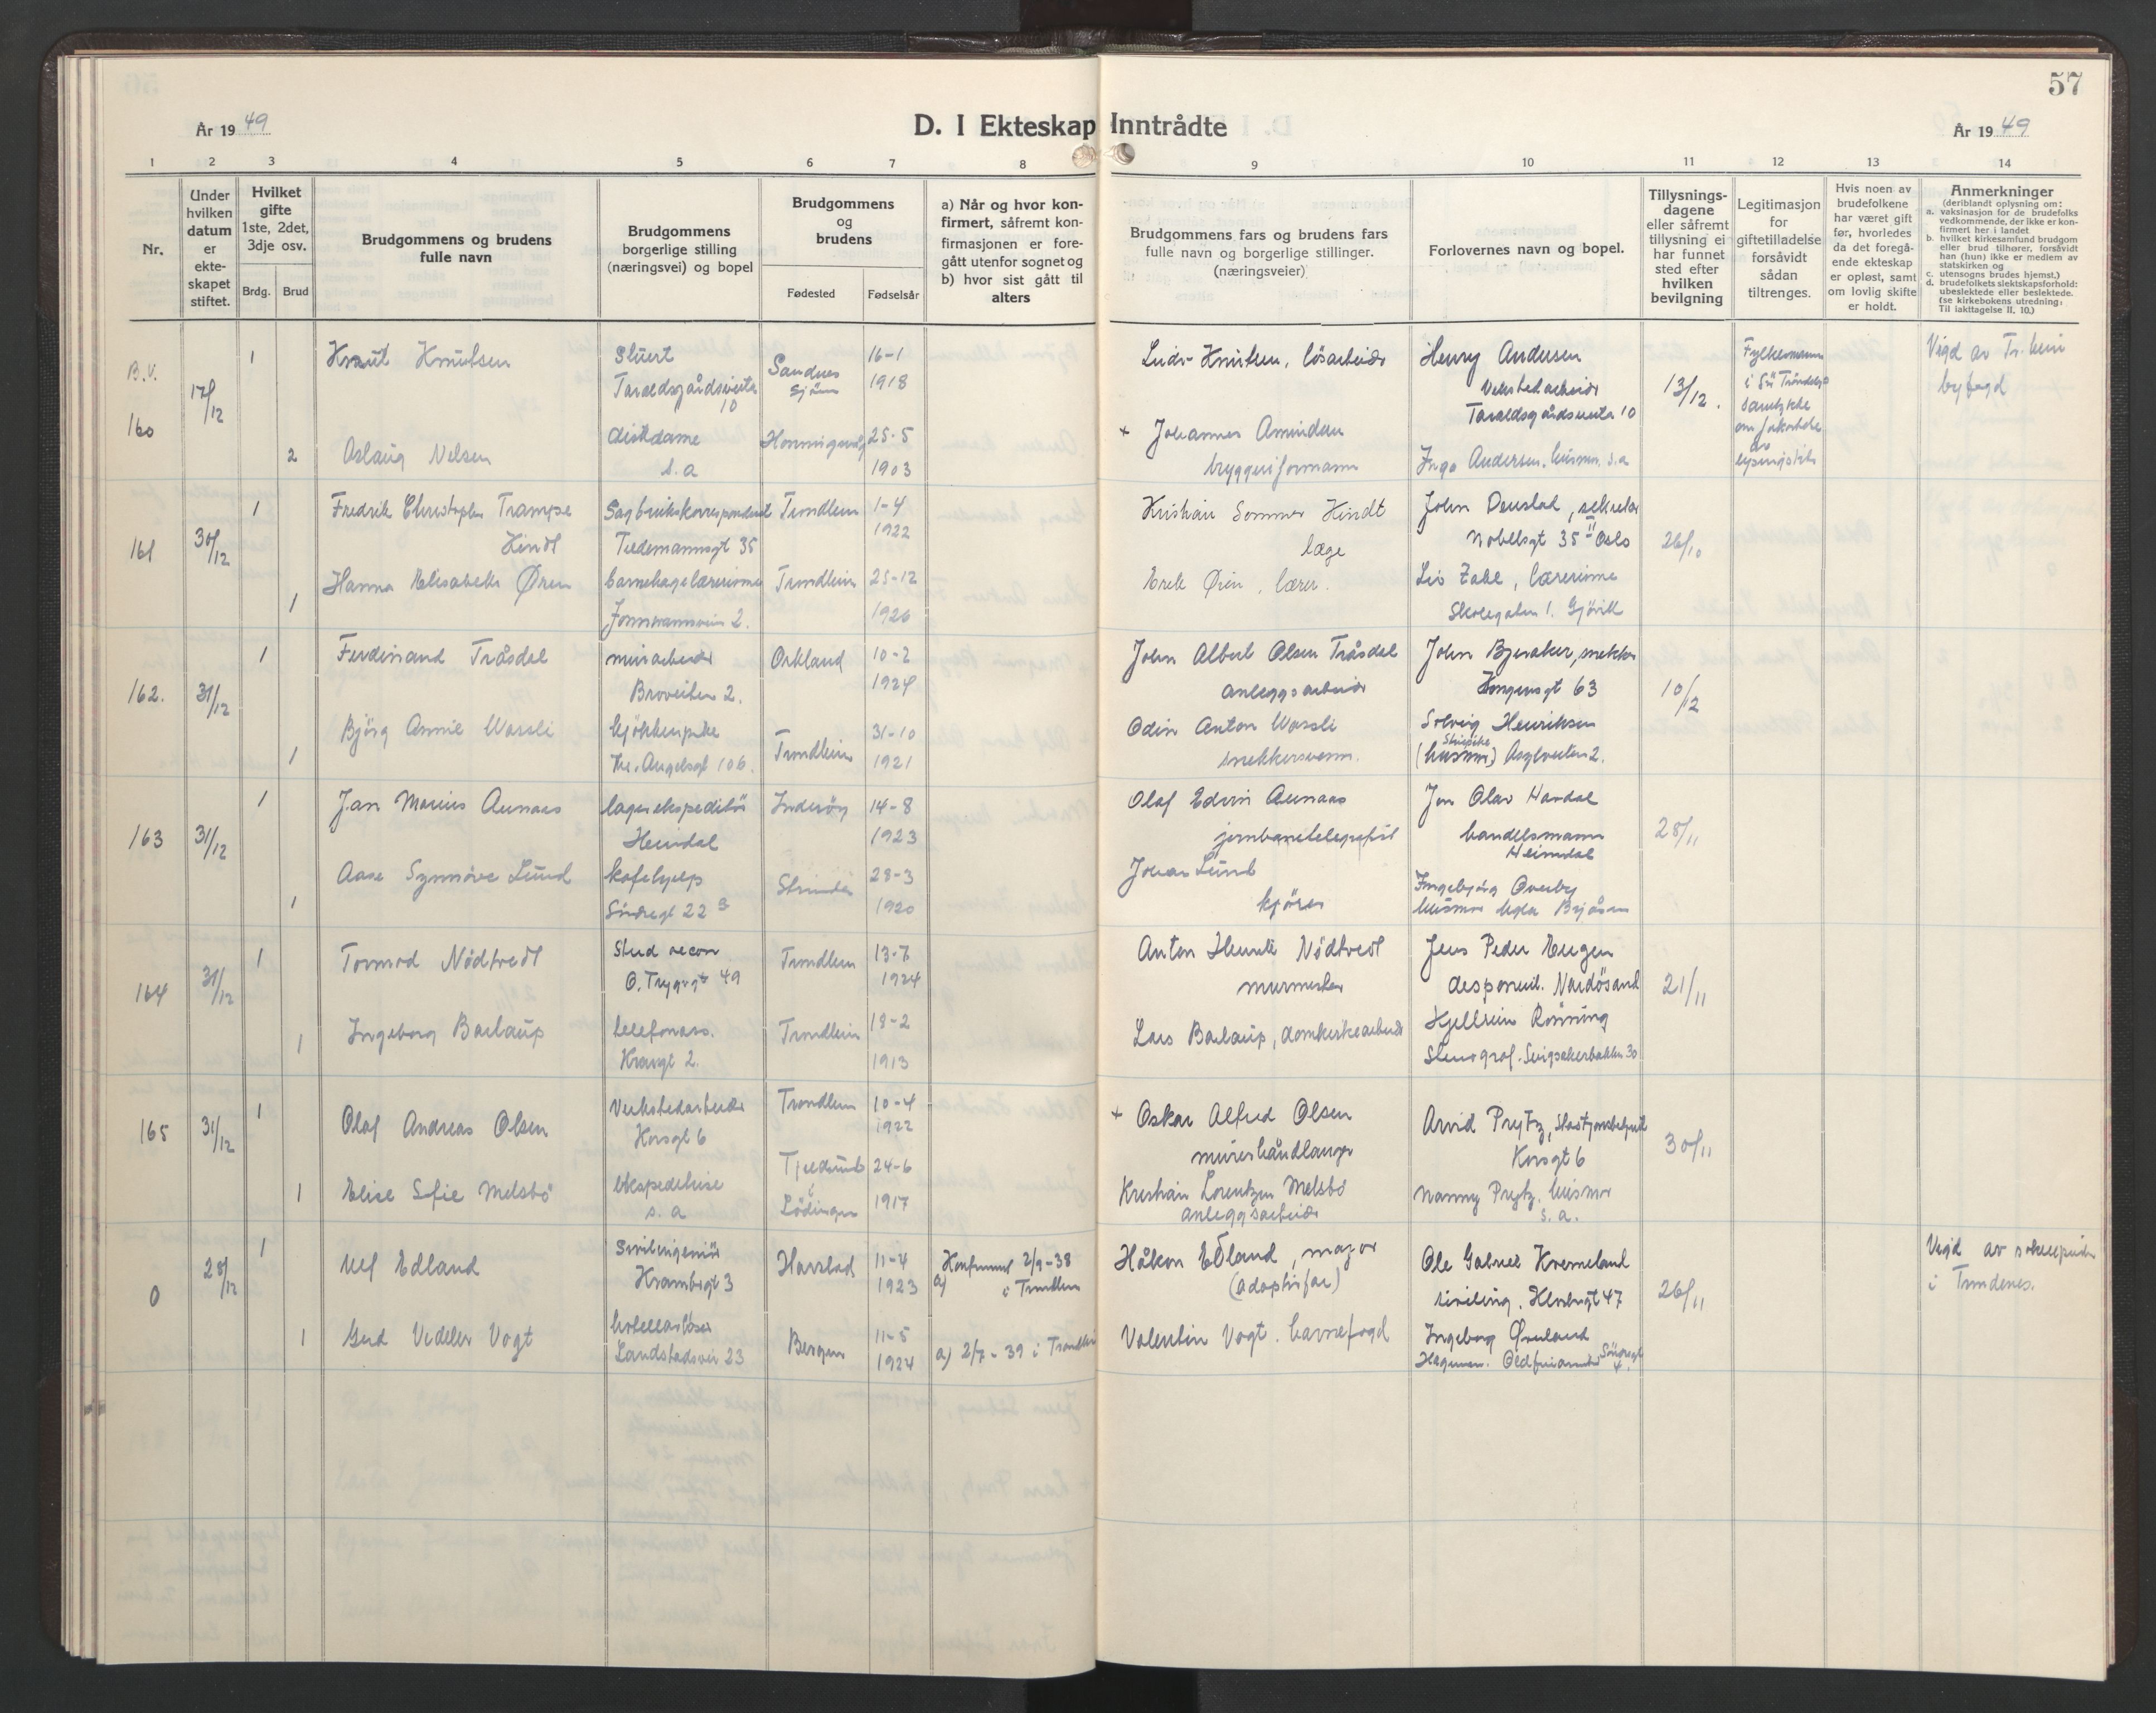 57
År 1949
D. I Ekteskap Inntrådte
År 1949
1 2 3 4 5 6 7 8 9 10 11 12 13 14
Nr.
Under
hvilken
datum
er
ekte-
skapet
stiftet.
Hvilket
gifte
1ste, 2det,
3dje osv.
Brdg. Brud
Brudgommens og brudens
fulle navn
Brudgommens
borgerlige stilling
(næringsvei) og bopel
Brudgommens
og
brudens
Fødested Fødselsår
a) Når og hvor kon-
firmert, såfremt kon-
firmasjonen er fore-
gått utenfor sognet og
b) hvor sist gått til
alters
Brudgommens fars og brudens fars
fulle navn og borgerlige stillinger.
(næringsveier)
Forlovernes navn og bopel.
Tillysnings-
dagene
eller såfremt
tillysning ei
har funnet
sted efter
hvilken
bevilgning
Legitimasjon
for
giftetilladelse
forsåvidt
sådan
tiltrenges.
Hvis noen av
brudefolkene
har været gift
før, hvorledes
da det foregå-
ende ekteskap
er opløst, samt
om lovlig skifte
er holdt.
Anmerkninger
(deriblandt oplysning om:
a. vaksinasjon for de brudefolks
vedkommende, der ikke er kon-
firmert her i landet
b. hvilket kirkesamfund brudgom
eller brud tilhører, forsåvidt
han (hun) ikke er medlem av
statskirken og
c. utensogns brudes hjemst.)
d. brudefolkets slektskapsforhold:
ubeslektede eller beslektede.
(se kirkebokens utredning:
Til iakttagelse II. 10.)
B.V.
160
17/12
1
Knut Knutsen
Stuert
Taraldsgårdsveita
10
Sandnes
16-1
1918
2
Aslaug Nilsen
diskdame
s.a
25-5
1903
Knutsen, løsarbeider
+ Johannes Amundsen
bryggeriformann
Henry Andersen
Verkstedarbeider
Taraldsgårdsveita 10
Inga Andersen. husmor. s.a
13/12.
Fylkesmannen
i Sør Trøndelag
samtykke
Vigd av
byfogd
161
30/12
1
Fredrik Christopher Trampe
Hindt
Sagbrukskorrespondent
Tidemannsgt 35
Trondheim
1-4
1922
1
Hanna Elisabeth Øren
barnehagelærerinne
Fossumannsvei 2.
Trondheim
25-12
1926
Kristian Sommer Hindt
læge
Erik Øren, lærer.
John Denstad, sekretær
Nobelsgt 35 II Oslo
Liv Zahl, lærerinne
Skolegaten 1. Gjøvik
26/10
162.
31/12
1
Ferdinand Tråsdal
murarbeider
Broveiten 2.
Orkland
10-2
1924
1
Bjørg Annie Wassli
kjøkkenpike
106.
Trondheim
31-10
1921
John Albert Olsen Tråsdal
anleggsarbeider
Odin Anton Wassli
snekkersvenn.
John Bjeraker, snekker
Kongensgt 63
Solveig Henriksen
Asylveiten 2.
10/12
163
31/12
1
Jan Marius Aunaas
lagerekspeditør
Heimdal
Inderøy
14-8
1923
1
Aase Synnøve Lund
kafehjelp
Søndregt 22 B
Strinda
28-3
1920
Olaf Edvin Aunaas
jernbanetelegrafist
Johan Lund
kjører
Jon Olav Hardal
handelsmann
Heimdal
Ingebjørg Overby
husmor
28/11
164
31/12
1
Tormod Nødtvedt
Stud oecon
O. Tryggv.gt 49
Trondheim
13-7
1924
1
Ingeborg Barlaup
telefonass.
2.
Trondheim
18-2
1913
Anton Henrik Nødtvedt
murmester
Lars Barlaup, domkirkearbeider
Jens Peder Bergen
disponent.
Kjellrun Rønning
Stenograf. Singsakerbakken 30
21/11
165
31/12
1
Olaf Andreas Olsen
Verkstedarbeider
Korsgt 6
Trondheim
10-4
1922
1
Elise Sofie Melsbö
Ekspeditrise
s. a
Tjeldsund
i
Lödingen
24-6
1917
+ Oskar Alfred Olsen
murerhåndlanger
Kristian Lorentzen Melsbö
anleggsarbeider
Arvid Prytz,
Korsgt 6
Nanny Prytz. husmor
s. a.
30/11
0
28/12
1
Ulf Edland
Sivilingeniør
Krambugt 3
Harstad
11-4
1923
Konfirmert 2/9-38
a) i Trondheim
1
Gerd Vedeler Vogt
Landstadsvei 23
Bergen
11-5
1924
a) 2/7-39 i Trondheim
Håkon Edland, major
(adoptivfar)
Valentin Vogt. havnefogd
Ole Gabriel Kverneland
siviling. Klostergt 47
Ingeborg Øverland
26/11
Vigd av sokneprest
i Trondenes.